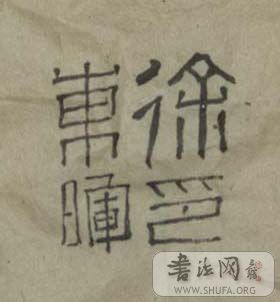 徐印
東暉
書法网
WWW.SHUFA.ORG